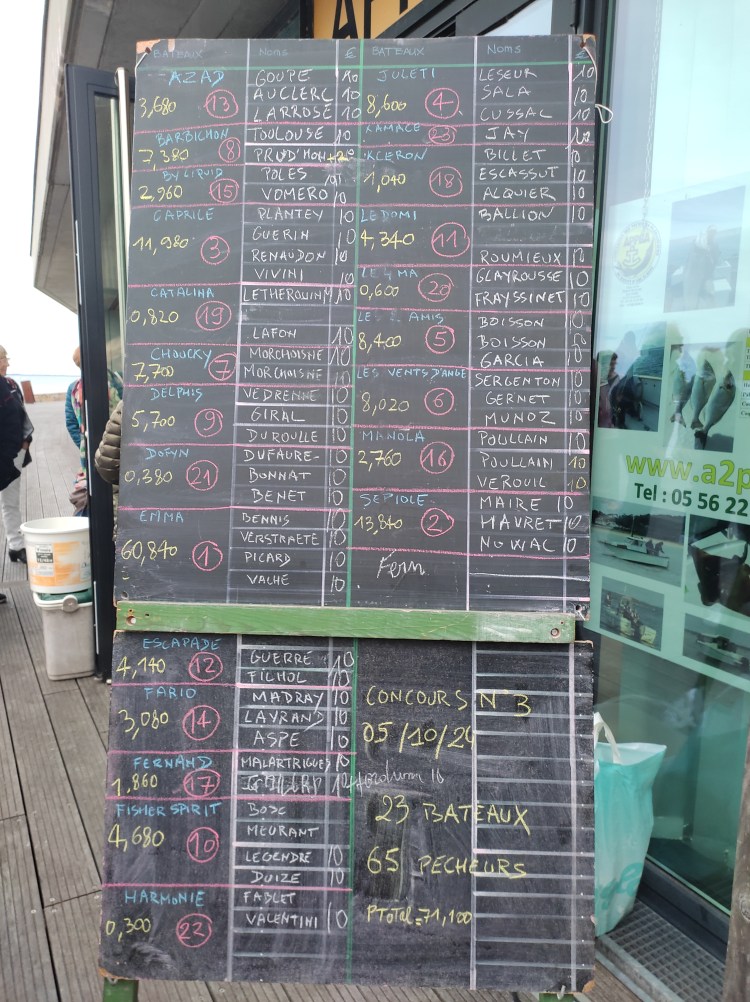 BATEAUX NOMS € BATEAUX NOMS €
AZAD
3,680 13
GOUPE 10
AUCLERC 10
LARROSE 10
BARBICHON
7,380 8
TOULOUSE 10
PRUD'HOM
BY LIQUID
2,960 15
POLES 10
VOMERO 10
CAPRICE
11,980 3
PLANTEY 10
GUERIN 10
RENAUDON 10
VIVINI 10
CATALINA
0,820 19
LETHEROUIN M 10
LAFON 10
CHOUCKY 7
7,700
MORCHOISNE 10
MORCHOISNE 10
DELPHIS
5,700 9
VEDRENNE 10
GIRAL 10
DUROULLE 10
DOFYN
0,380 21
DUFAURE- 10
BONNAT 10
BENET 10
EMMA
60,840 1
BENNIS 10
VERSTRAETE 10
PICARD 10
VACHE 10
JULETI
8,600 4
LESEUR 10
SALA 10
CUSSAC 10
KAMACE 23
JAY 10
KLERON
1,040 18
BILLET 10
ESCASSUT 10
ALQUIER 10
LEDOMI
4,340 11
BALLION 10
ROUMIEUX 10
LE MA
0,600 20
GLAYROUSSE 10
FRAYSSINET 10
AMIS
8,400 5
BOISSON 10
BOISSON 10
GARCIA 10
LES VENTS D'ANGE
8,020 6
SERGENTON 10
GERNET 10
MUNOZ 10
MANOLA
2,760 16
POULLAIN 10
POULLAIN 10
VEROUIL 10
SEPIOLE
13,840 2
MAIRE 10
HAVRET 10
NOWAC 10
Fern
ESCAPADE
4,140 12
GUERRE 10
FILHOL 10
FARIO
3,080 14
MADRAY 10
LAYRAND 10
ASPE 10
FERNAND
1,860 17
MALARTRIGUES 10
FISHER SPIRIT
4,680 10
BOSC
MEURANT
LEGENDRE 10
DUIZE 10
HARMONIE
0,300 22
FABLET
VALENTINI 10
CONCOURS N°3
05/10/24
23 BATEAUX
65 PECHEURS
PTotal = 71,100
www.a2p
Tel : 05 56 22